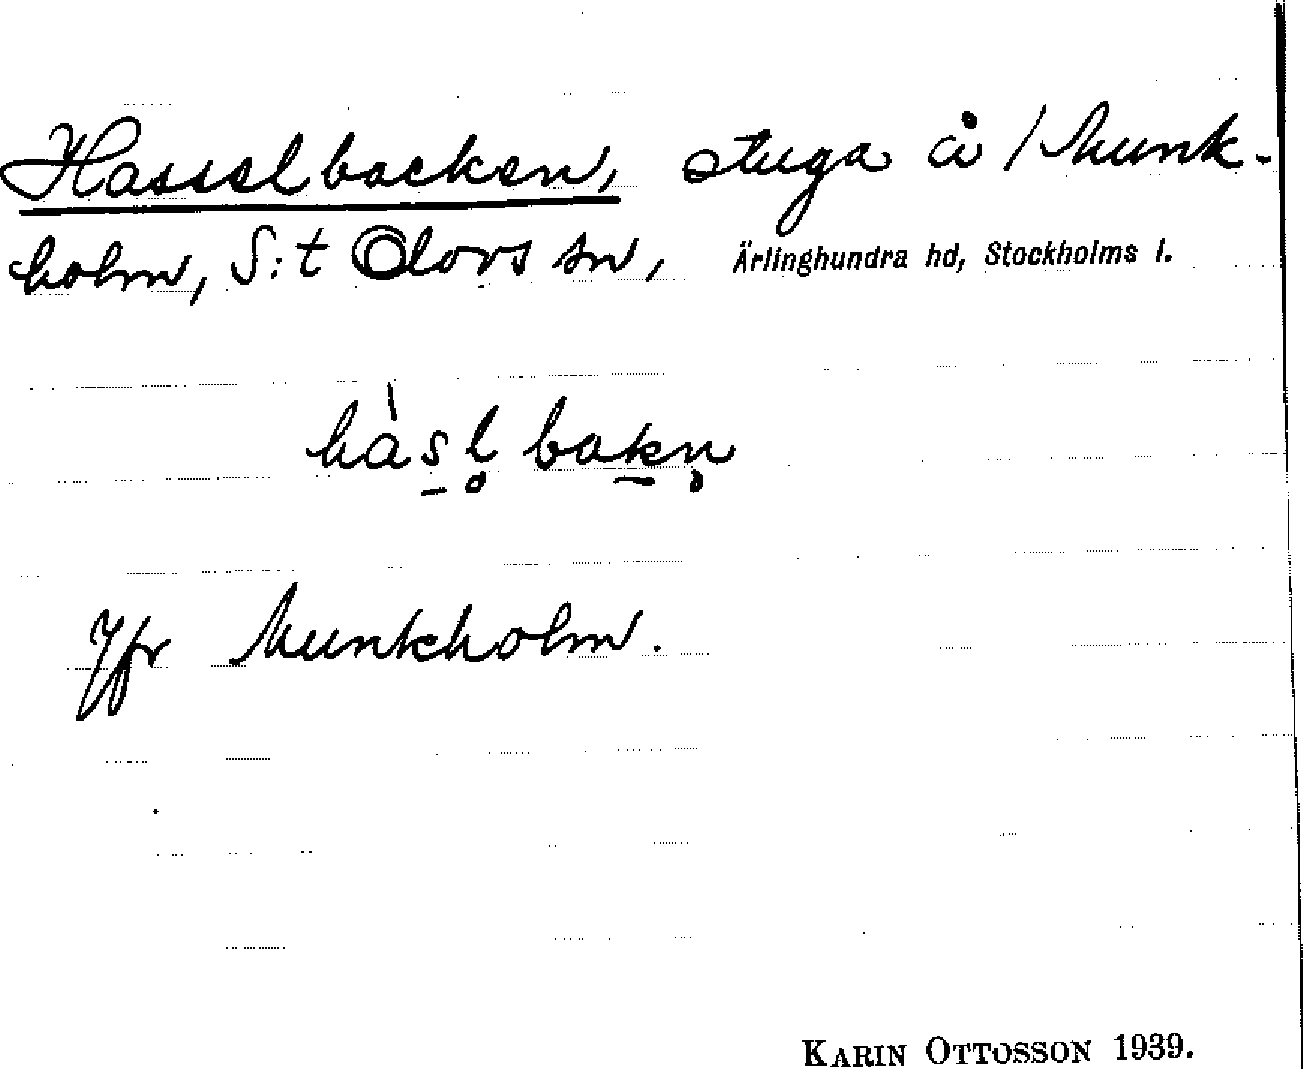 Hasselbacken, stuga å / Munk-
holm, S:t Olovs sn, Ärlinghundra hd, Stockholms l.
hàs̠l̥bak̠n̥
Jfr Munkholm.
KARIN OTTOSSON 1939.